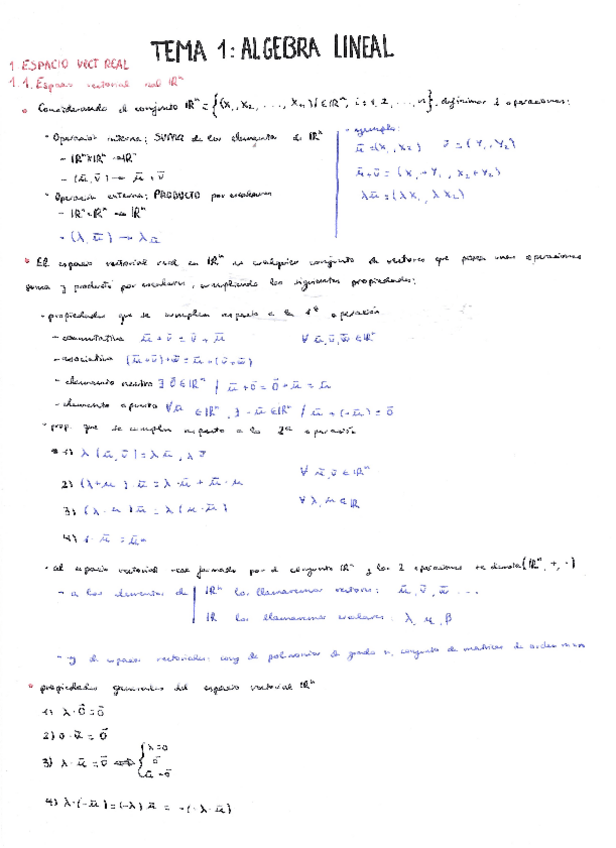 TEMA 1: ALGEBRA LINEAL
1. ESPACIO VECT REAL
1.1. Espacio vectorial real ℝⁿ
• Considerando el conjunto ℝⁿ = {(x₁, x₂, ..., xₙ) / ∈ ℝⁿ, i = 1, 2, ..., n}, definimos 2 operaciones:
- Operación interna: SUMA de los elementos de ℝⁿ
- ℝⁿxℝⁿ → ℝⁿ
- (ū, v̄) → ū + v̄
- Operación externa: PRODUCTO por escalares
- ℝⁿ → ℝⁿ
- (λ, ū) → λū
- ejemplo:
ū = (x₁, x₂) v̄ = (y₁, y₂)
ū + v̄ = (x₁ + y₁, x₂ + y₂)
λū = (λx₁, λx₂)
• El espacio vectorial real en ℝⁿ es cualquier conjunto de vectores que posea unas operaciones
suma y producto por escalares, cumpliendo las siguientes propiedades:
- propiedades que se cumplen respecto a la 1ª operación
- conmutativa ū + v̄ = v̄ + ū ∀ ū, v̄, w̄ ∈ ℝⁿ
- asociativa (ū + v̄) + w̄ = ū + (v̄ + w̄)
- elemento neutro ∃ 0̄ ∈ ℝⁿ / ū + 0̄ = 0̄ + ū = ū
- elemento opuesto ∀ū ∈ ℝⁿ, ∃ -ū ∈ ℝⁿ / ū + (-ū) = 0̄
- prop. que se cumplen respecto a la 2ª operación
1) λ (ū, v̄) = λū, λv̄
∀ ū, v̄ ∈ ℝⁿ
2) (λ + μ) · ū = λ · ū + ū · μ
∀ λ, μ ∈ ℝ
3) (λ · μ) ū = λ (μ · ū)
4) 1 · ū = ū
- al espacio vectorial real formado por el conjunto ℝⁿ y las 2 operaciones se denota (ℝⁿ, +, ·)
- a los elementos de | ℝⁿ los llamaremos vectores: ū, v̄, w̄ ...
ℝ los llamaremos escalares: λ, μ, β
- ej de espacios vectoriales: conj de polinomios de grado n, conjunto de matrices de orden mxn
• propiedades generales del espacio vectorial ℝⁿ
1) λ · 0̄ = 0̄
2) 0 · ū = 0̄
3) λ · ū = 0̄ ⟺ { λ = 0
ó
ū = 0̄
4) λ · (-ū) = (-λ) ū = -(λ · ū)